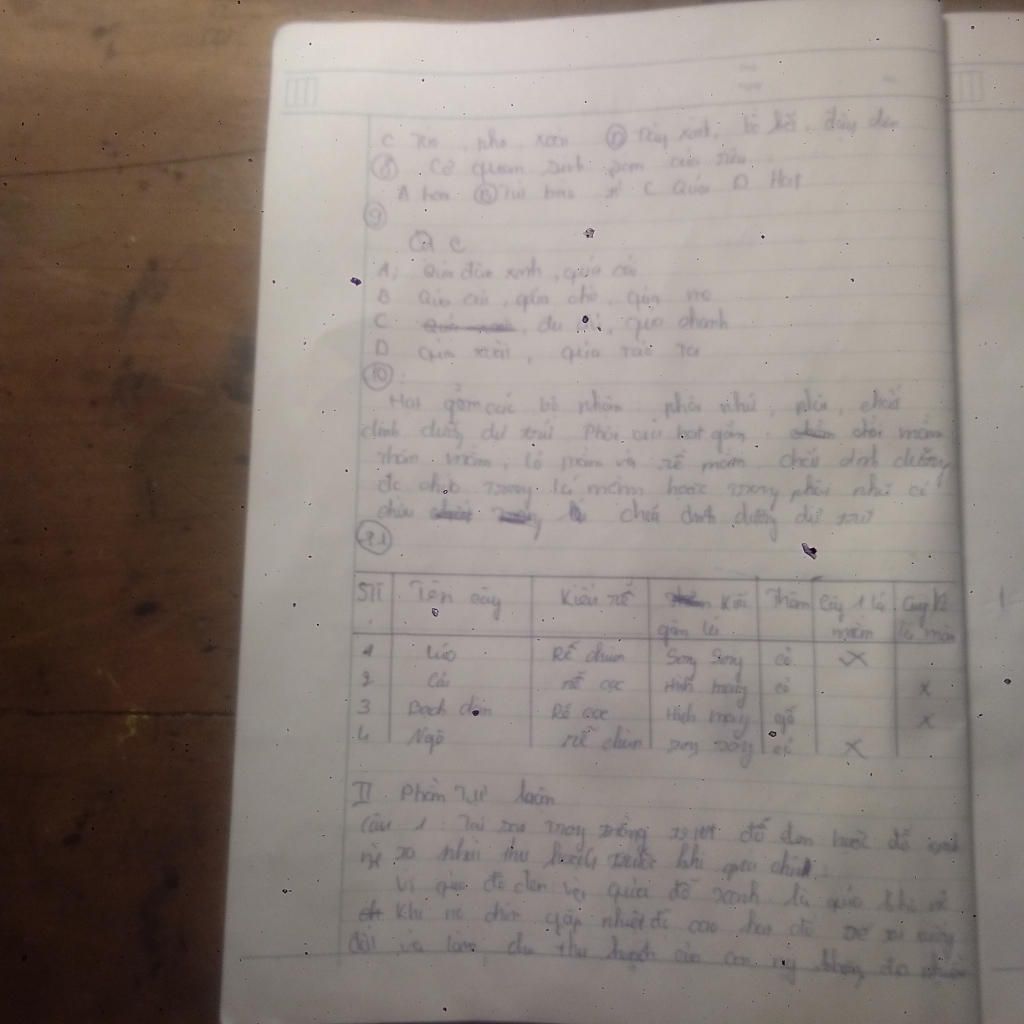 C Táo, nho, xoài Ⓓ Tây xanh, bồ kết, đậu đen
⑧ Cơ quan sinh sản của rêu
A hoa Ⓑ Túi bào tử C Quả D Hạt
⑨
Q C
A, Quả đậu xanh, quả cải
B Quả cải, quả chò, quả me
C đu đủ, quả chanh
D quả xoài, quả táo ta
⑩:
Hạt gồm các bộ phận phôi nhũ, phôi, chất
dinh dưỡng dự trữ. Phôi của hạt gồm: chồi mầm
thân mầm, lá mầm và rễ mầm. chất dinh dưỡng
trong lá mầm hoặc trong phôi nhũ có
chứa chất dinh dưỡng dự trữ
STT Tên cây Kiểu rễ Kiểu gân lá Thân Cây 1 lá mầm Cây 2 lá mầm
1 Lúa Rễ chùm Song Song cỏ X
2 Cải rễ cọc Hình mạng cỏ X
3 Bạch đàn Rễ cọc Hình mạng gỗ X
4 Ngô rễ chùm song song cỏ X
II Phần Tự luận
Câu 1: Tại sao trong trồng trọt đỗ đen hoặc đỗ xanh
phải thu hoạch trước khi quả chín
Vì quả đỗ đen và quả đỗ xanh là quả khô nẻ
Khi nó chín gặp nhiệt độ cao hạt đỗ sẽ rơi xuống
đất và làm cho thu hoạch của con người không đạt nhiều